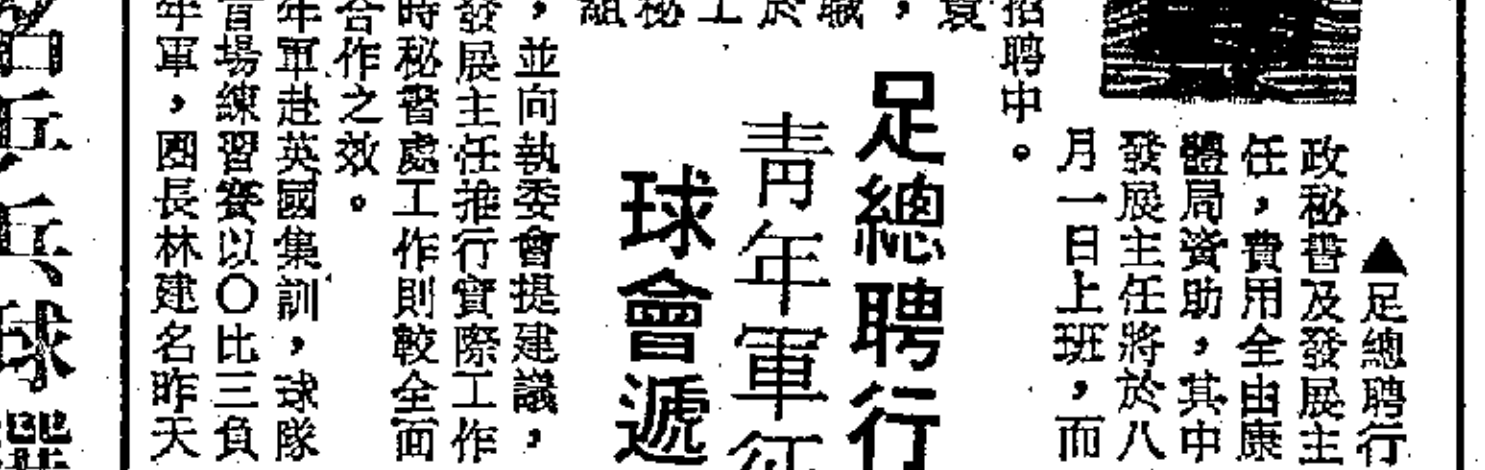 ▲足總聘行
政秘書及發展主
任，費用全由康
體局資助，其中
發展主任將於八
月一日上班，而
招聘中。
足總聘行
青年軍征
球會遞
袁
，
職
於
工
秘
組
，並向執委會提建議，
發展主任推行實際工作
時秘書處工作則較全面
合作之效。
年軍赴英國集訓，球隊
首場練習賽以〇比三負
年軍，團長林建名昨天
球